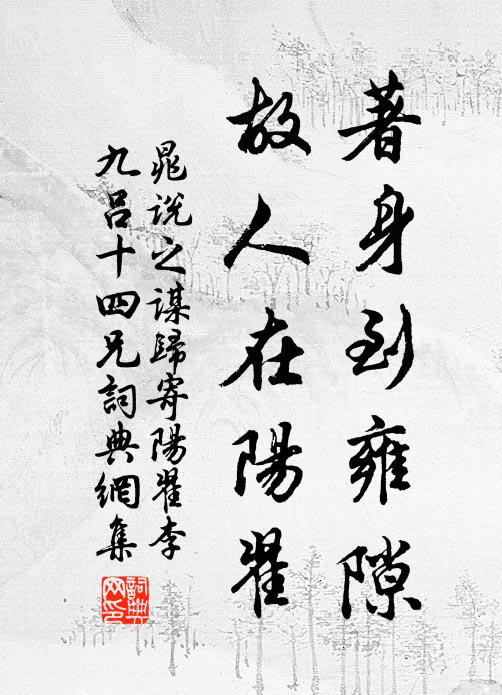 著身到雍隙
故人在陽翟
晁説之謀歸寄陽翟李
九呂十四兄詞典網集